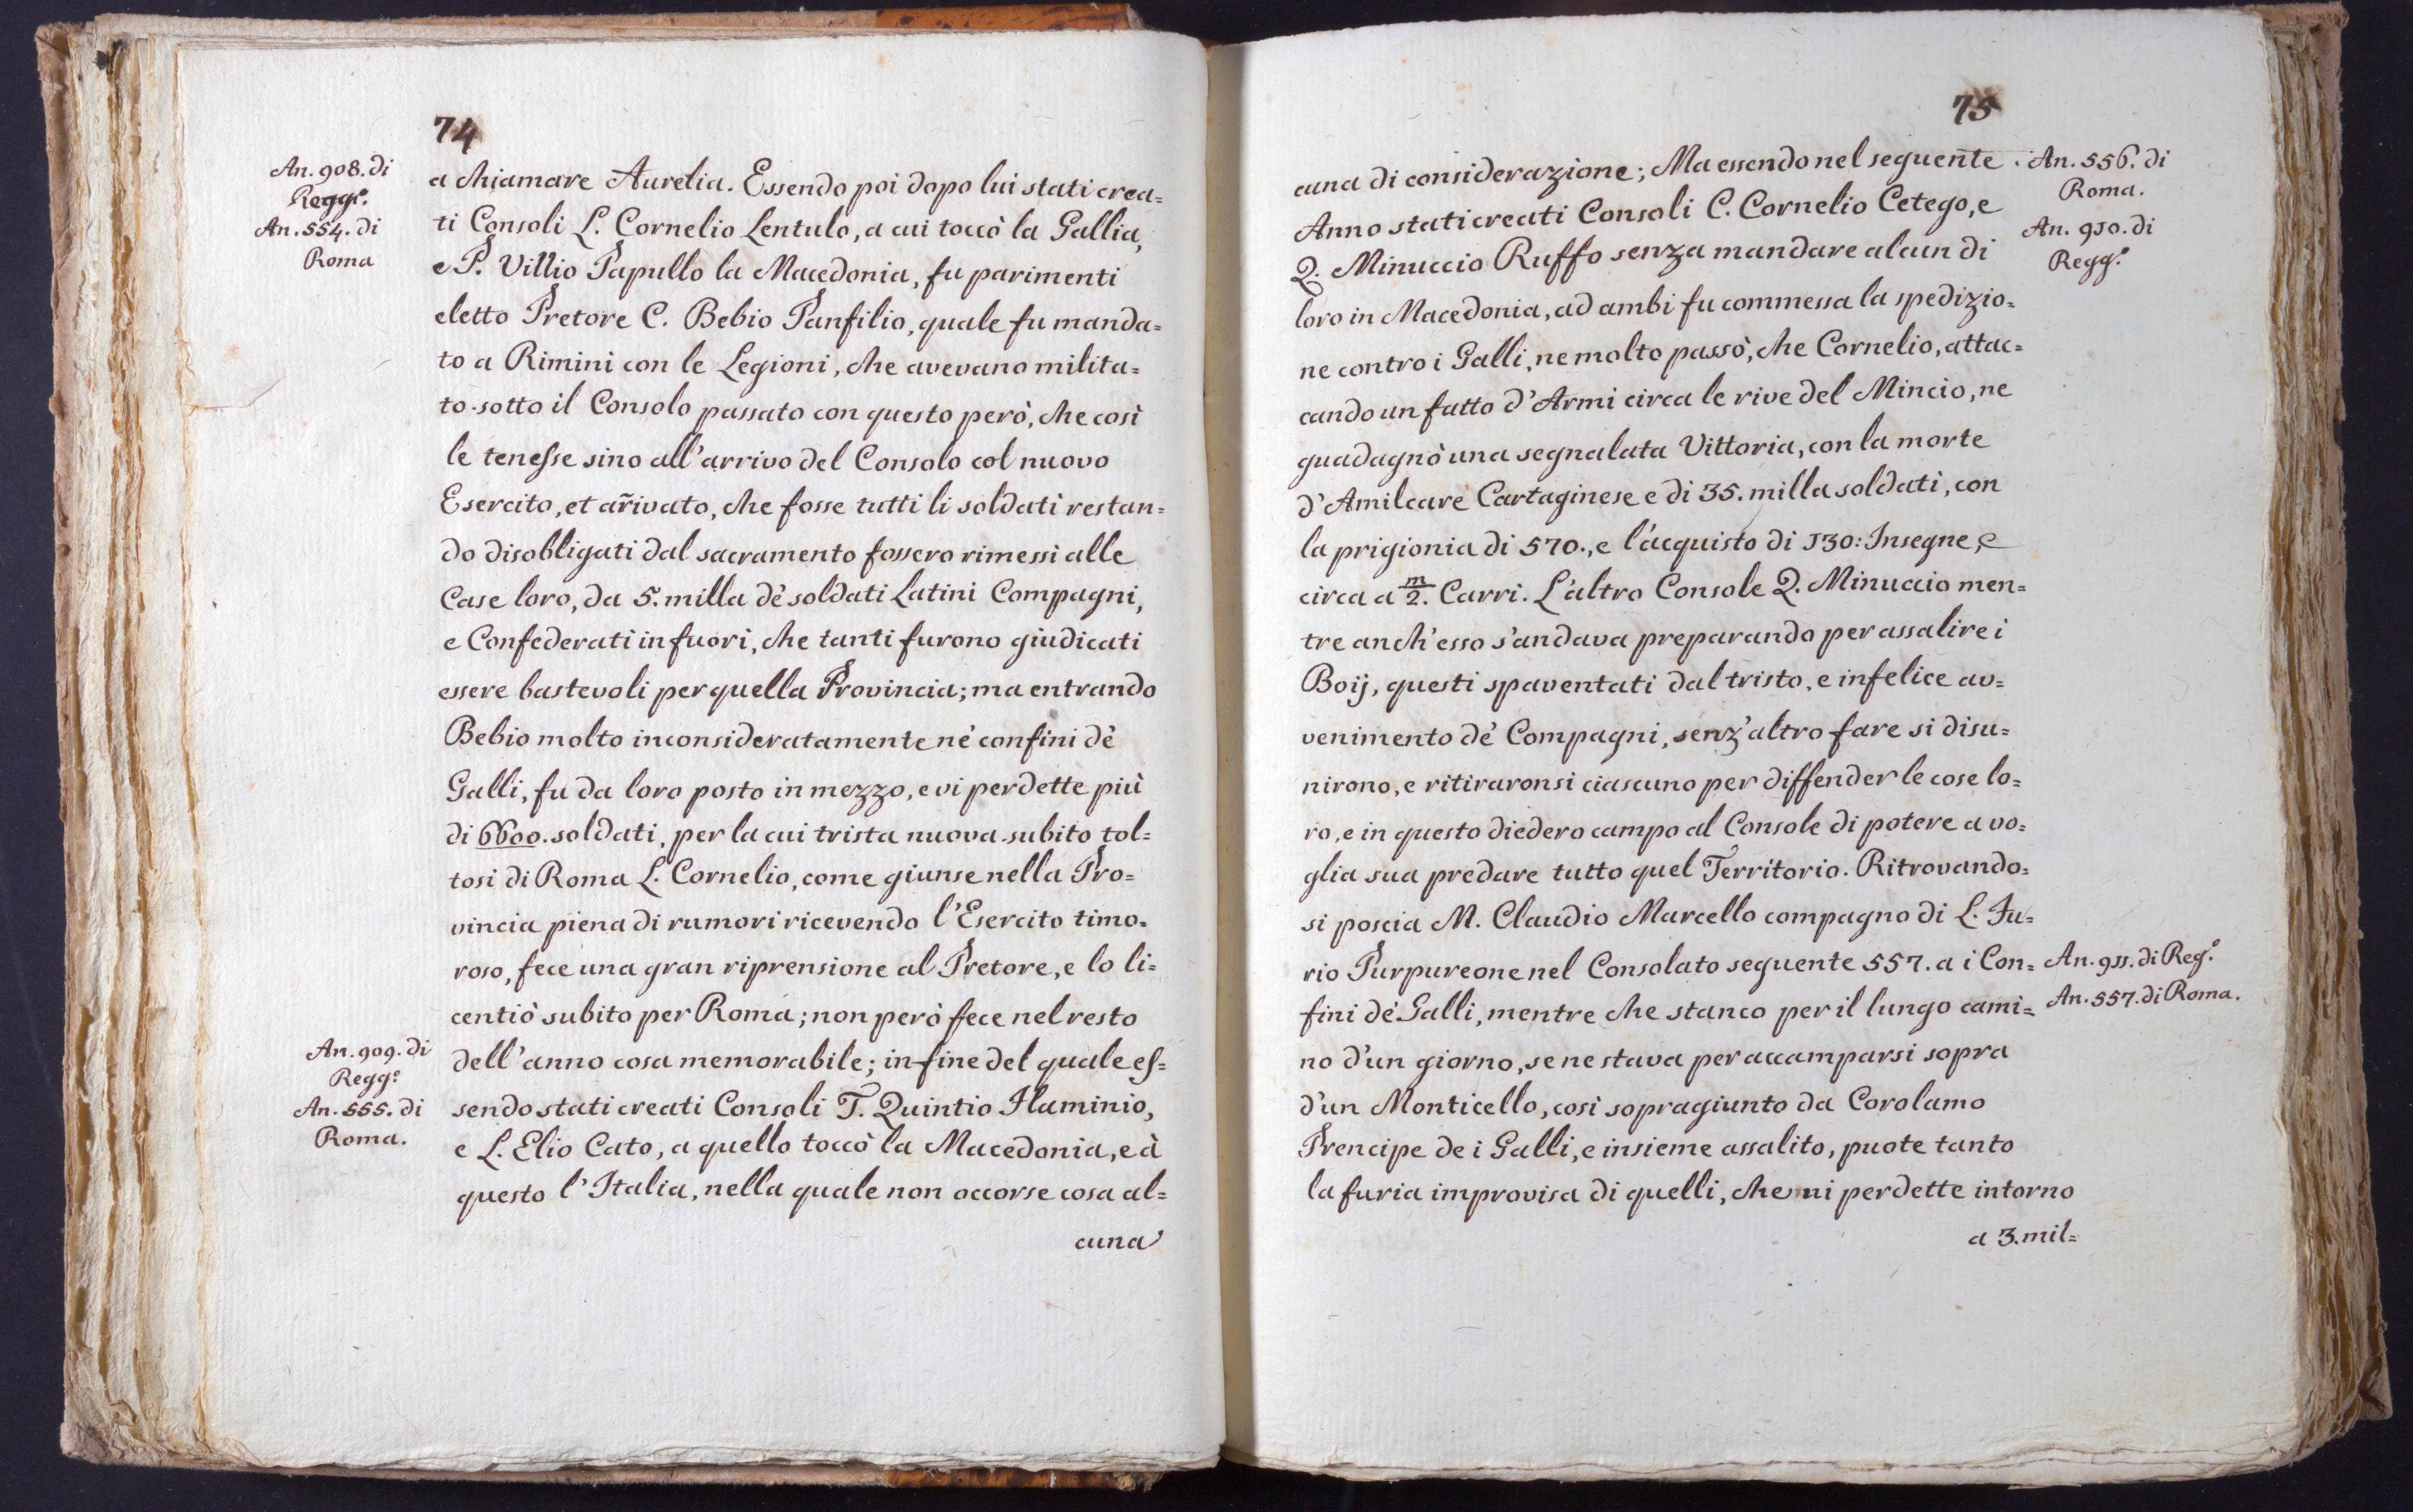 74
An. 908. di
Regg.º
An. 554. di
Roma
a chiamare Aurelia. Essendo poi dopo lui stati crea=
ti Consoli L. Cornelio Lentulo, a cui toccò la Gallia,
e P. Villio Papullo la Macedonia, fu parimenti
eletto Pretore C. Bebio Panfilio, quale fu manda=
to a Rimini con le Legioni, che avevano milita=
to sotto il Consolo passato con questo però, che così
le tenesse sino all'arrivo del Consolo col nuovo
Esercito, et ar̃ivato, che fosse tutti li soldati restan=
do disobligati dal sacramento fossero rimessi alle
Case loro, da 5. milla dè soldati Latini Compagni,
e Confederati in fuori, che tanti furono giudicati
essere bastevoli per quella Provincia; ma entrando
Bebio molto inconsideratamente nè confini dè
Galli, fu da loro posto in mezzo, e vi perdette più
di 6600. soldati, per la cui trista nuova subito tol=
tosi di Roma L. Cornelio, come giunse nella Pro=
vincia piena di rumori ricevendo l'Esercito timo=
roso, fece una gran riprensione al Pretore, e lo li=
centiò subito per Roma; non però fece nel resto
An. 909. di
Regg.º
An. 555. di
Roma.
dell'anno cosa memorabile; in fine del quale es=
sendo stati creati Consoli T. Quintio Flaminio,
e L. Elio Cato, a quello toccò la Macedonia, e à
questo l'Italia, nella quale non occorse cosa al=
cuna
75
cuna di considerazione; Ma essendo nel seguente
Anno stati creati Consoli C. Cornelio Cetego, e
Q. Minuccio Ruffo senza mandare alcun di
loro in Macedonia, ad ambi fu commessa la spedizio=
ne contro i Galli, ne molto passò, che Cornelio, attac=
cando un fatto d'Armi circa le rive del Mincio, ne
guadagnò una segnalata Vittoria, con la morte
d'Amilcare Cartaginese e di 35. milla soldati, con
la prigionia di 570., e l'acquisto di 130: Insegne, e
circa a m/2. Carri. L'altro Console Q. Minuccio men=
tre anch'esso s'andava preparando per assalire i
Boij, questi spaventati dal tristo, e infelice av=
venimento dè Compagni, senz'altro fare si disu=
nirono, e ritiraronsi ciascuno per diffender le cose lo=
ro, e in questo diedero campo al Console di potere a vo=
glia sua predare tutto quel Territorio. Ritrovando=
si poscia M. Claudio Marcello compagno di L. Fu=
rio Purpureone nel Consolato seguente 557. a i Con=
fini dè Galli, mentre che stanco per il lungo cami=
no d'un giorno, se ne stava per accamparsi sopra
d'un Monticello, così sopragiunto da Corolamo
Prencipe de i Galli, e insieme assalito, puote tanto
la furia improvisa di quelli, che vi perdette intorno
a 3. mil=
An. 556. di
Roma.
An. 910. di
Regg.º
An. 911. di Reg.º
An. 557. di Roma.